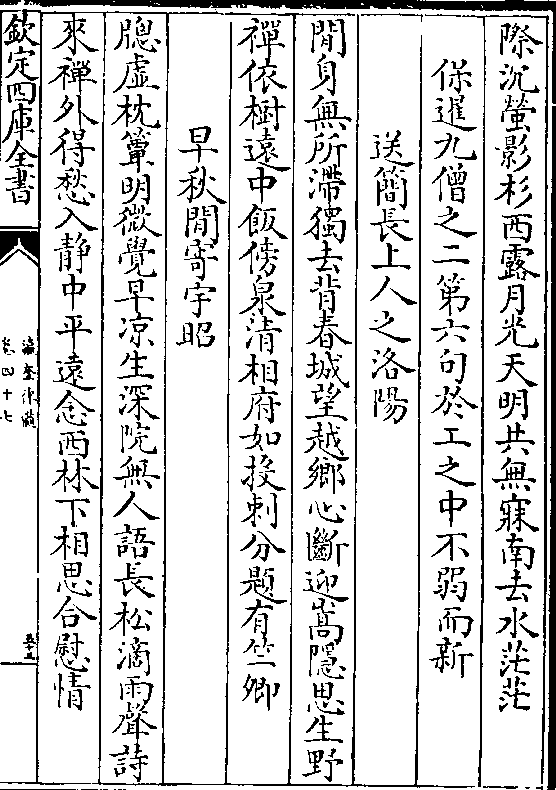 際沉螢影杉西露月光天明共無寐南去水茫茫
保暹九僧之二第六句於工之中不弱而新
送簡長上人之洛陽
閒身無所滯獨去背春城望越鄉心斷迎嵩隱思生野
禪依樹遠中飯傍泉清相府如投刺分題有竺卿
早秋閒寄宇昭
牕虚枕簟明微覺早凉生深院無人語長松滴雨聲詩
來禪外得愁入静中平遠念西林下相思合慰情
欽定四庫全書
瀛奎律髓
卷四十七